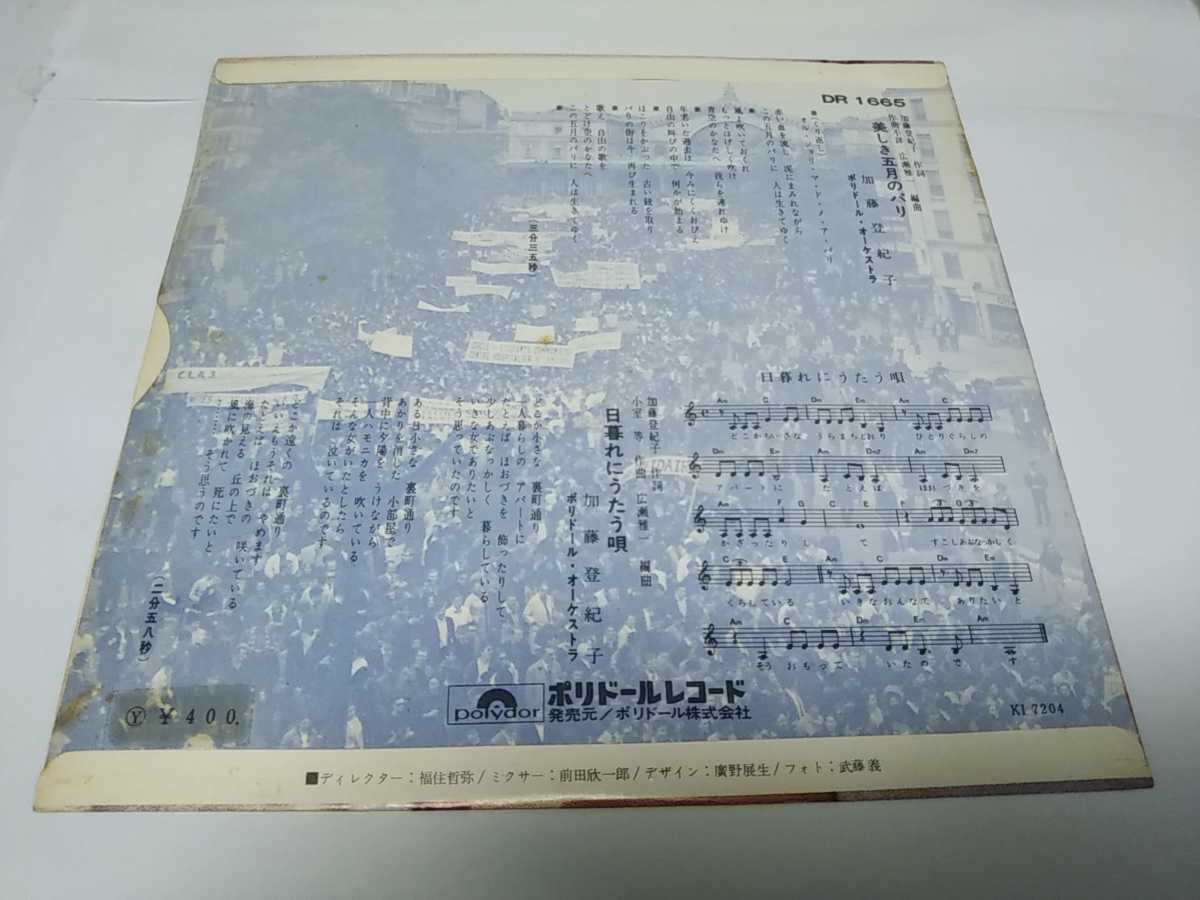 DR 1665
加藤登紀子 作詞
広瀬雅一 編曲
美しき五月のパリ
加藤登紀子
ポリドール・オーケストラ
■くり返し
オル・ジョリ・マ・ド・メ・ア・パリ
赤い血を流し 泥にまみれながら
この五月のパリに 人は生きてゆく
■
風よ吹いておくれ
もっとはげしく吹け
青空のかなたへ 我らを連れゆけ
■
年老いた過去は 今みにくくおびえ
自由の叫びの中で 何かが始まる
■
ほこりをかぶった 古い銃を取り
パリの街は今 再び生まれる
■
歌え 自由の歌を
とどけ空のかなたへ
この五月のパリに 人は生きてゆく
三分三五秒
日暮れにうたう唄
加藤登紀子 作詞
小室 等 作曲 広瀬雅一 編曲
日暮れにうたう唄
加藤登紀子
ポリドール・オーケストラ
どこか小さな 裏町通り
一人暮らしの アパートに
たとえば ほおづきを 飾ったりして
少しあぶなっかしく 暮らしている
いきな女でありたいと
そう思っていたのです
ある日小さな 裏町通り
あかりを消した 小部屋で
背中に夕陽を うけながら
一人ハモニカを 吹いている
そんな女がいたとしたら
それは 泣いているのです
どこか遠くの 裏町通り
いいえもうそれは やめます
たとえば ほおづきの 咲いている
海の見える 丘の上で
風に吹かれて 死にたいと
……… そう思うのです
(二分五八秒)
どこかちいさな うらまちどおり ひとりぐらしの
アパートに たとえば ほおづきを
かざったりし て すこしあぶなっかしく
くらしている いきなおんなで ありたいと
そうおもって いたので す
polydor
ポリドールレコード
発売元/ポリドール株式会社
Ⓨ ¥400.
KI 7204
■ディレクター:福住哲弥/ミクサー:前田欣一郎/デザイン:廣野展生/フォト:武藤義